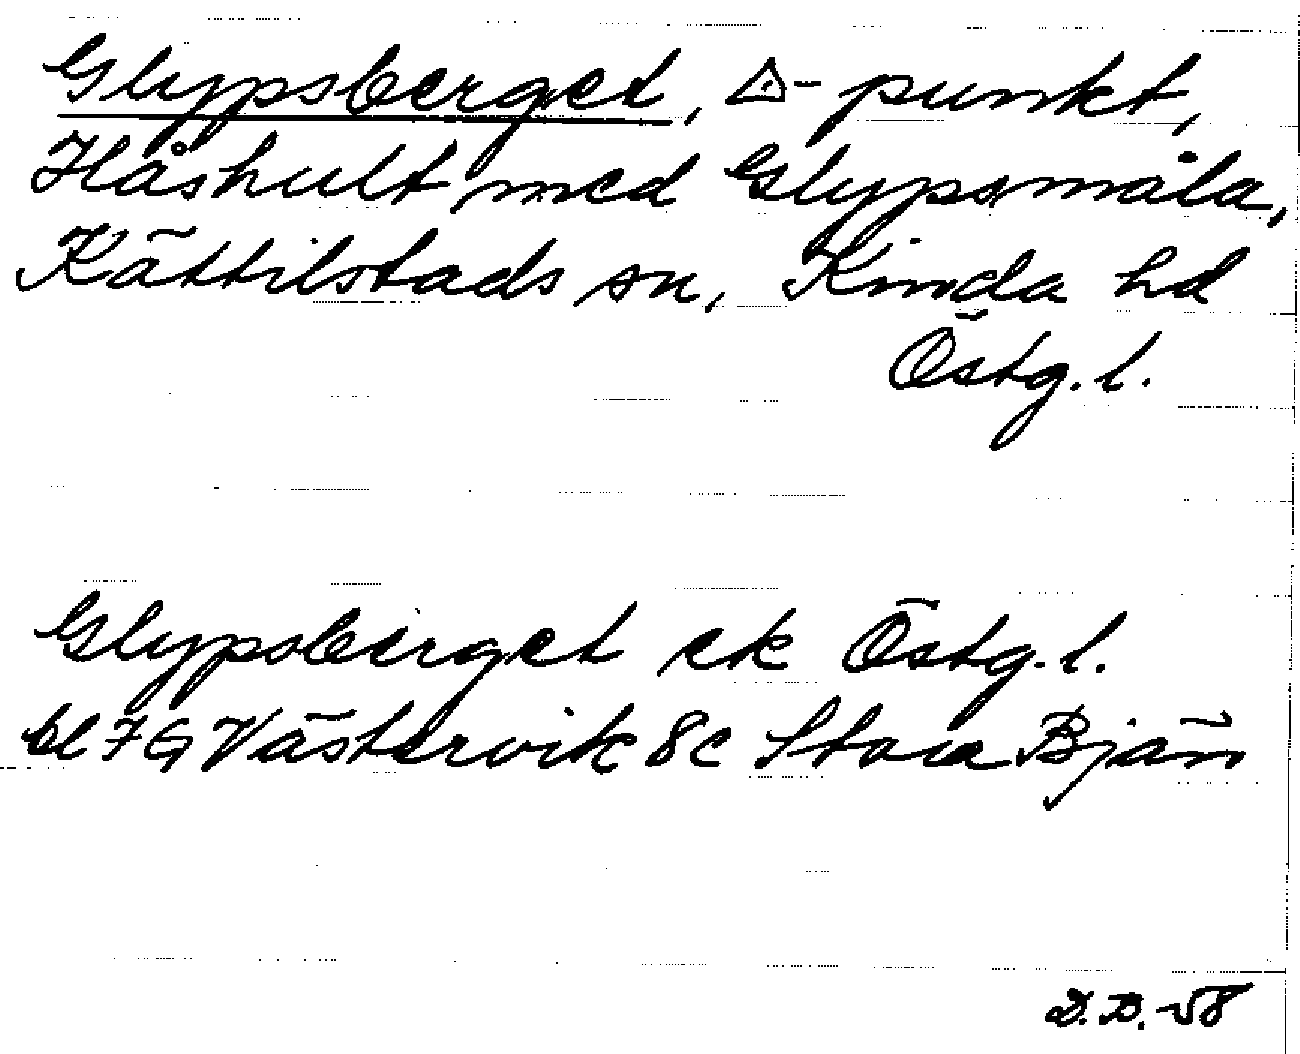 Glypsberget, △-punkt,
Håshult med Glypsmåla,
Kättilstads sn, Kinda hd
Östg. l.
Glypsberget ek Östg. l.
bl 7G Västervik 8c Stora Bjän
D.D. -58